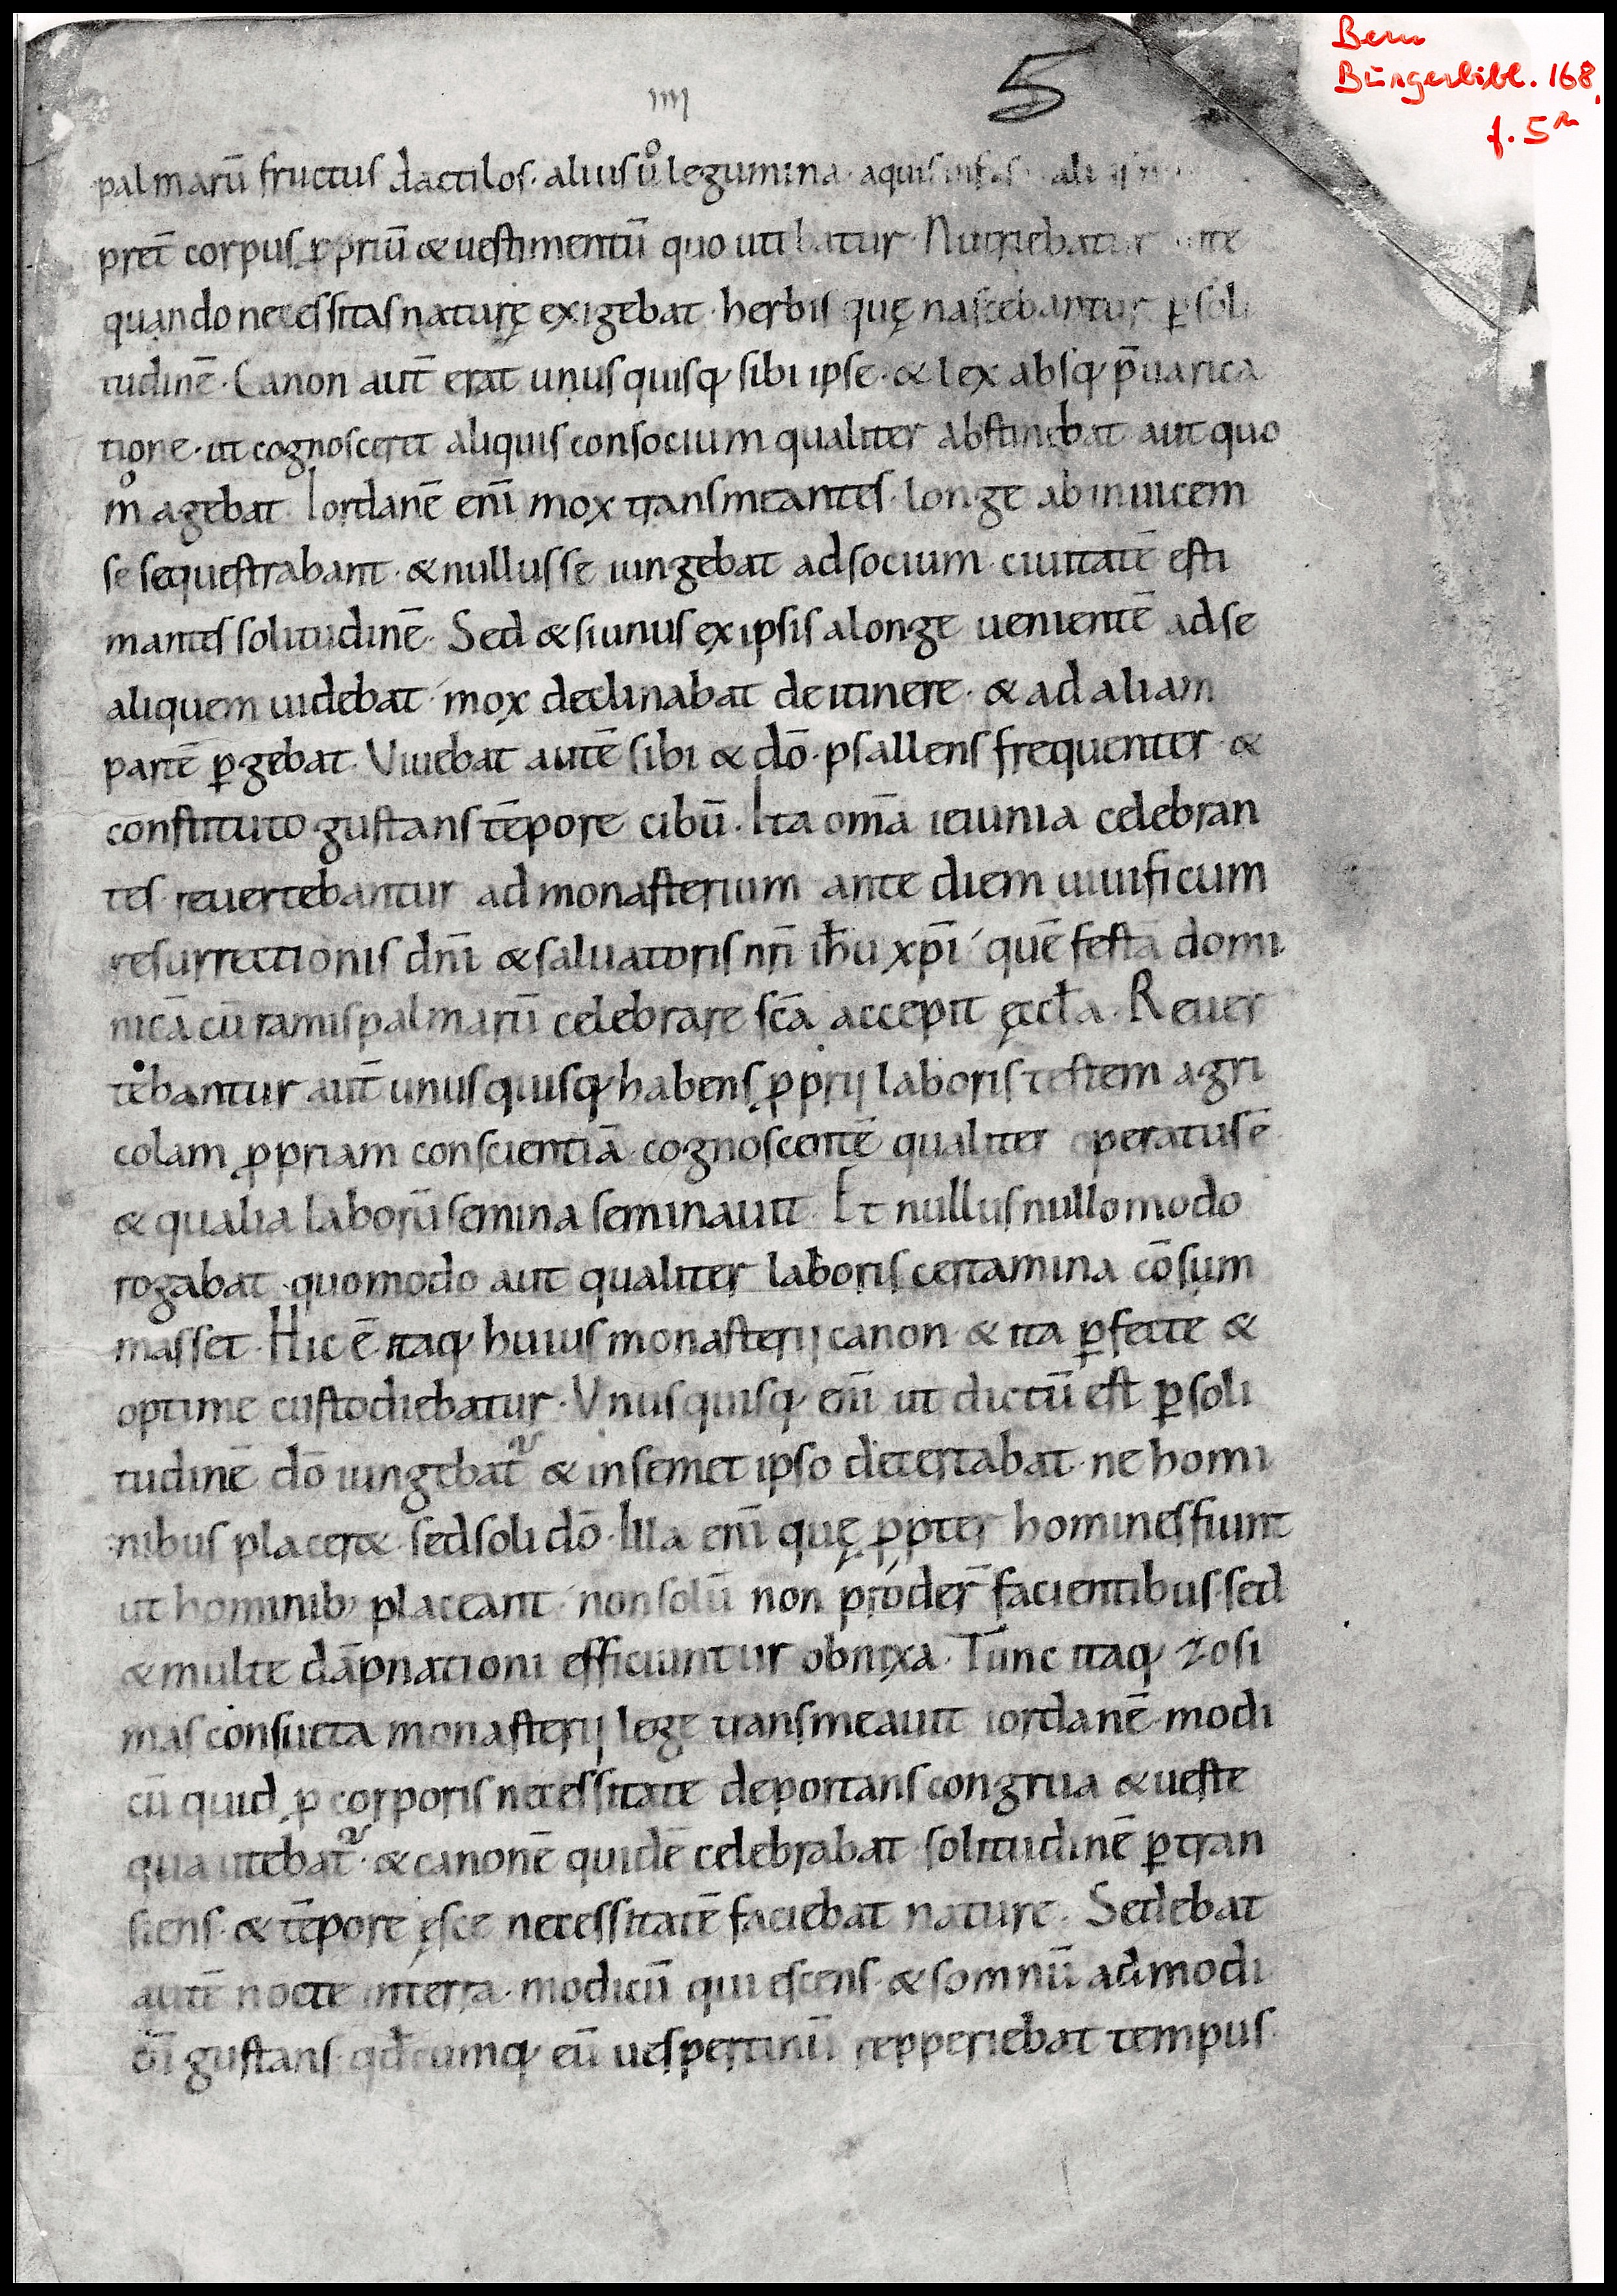 Bern
Bürgerbibl. 168,
f. 5r
IIII
5
palmarū fructus dactilos · alius ů legumina · aquis infusa
pret̄ corpus ꝓpriū & uestimentū quo utebatur · Nutriebatur
quando necessitas naturę exigebat · herbis quę nascebantur ꝑ soli
tudinē · Canon aut̄ erat unusquisq; sibi ipse · & lex absq; p̄uarica
tione · ut cognosceret aliquis consocium qualiter abstinebat aut quo
m̊ agebat · Iordanē eni̅ mox transmeantes · longe ab inuicem
se sequestrabant · & nullus se iungebat ad socium · ciuitatē esti
mantes solitudinē · Sed & si unus ex ipsis a longe uenientē ad se
aliquem uidebat · mox declinabat de itinere · & ad aliam
partē ꝑgebat · Viuebat autē sibi & dō · psallens frequenter · &
constituto gustans tēpore cibū · Ita om̄a ieiunia celebran
tes · reuertebantur ad monasterium ante diem uiuificum
resurrectionis dn̄i & saluatoris nr̄i ih̄u xp̄i · quē festā domi
nicā cū ramis palmarū celebrare sc̄a accepit ęccƚa · Reuer
tebantur aut̄ unusquisq; habens ꝓprij laboris testem agri
colam ꝓpriam conscientiā · cognoscentē qualiter operatus ē
& qualia laborū semina seminauit · Et nullus nullo modo
rogabat · quomodo aut qualiter laboris certamina cōsum
masset · Hic ē itaq; huius monasterij canon · & ita ꝑfecte &
optime custodiebatur · Vnusquisq; eni̅ ut dictū est ꝑ soli
tudinē dō iungebat᷑ & in semet ipso decertabat · ne homi
nibus placeret · sed soli dō · Illa eni̅ quę ꝓpter homines fiunt
ut hominib; placeant · non solū non proder̄ facientibus · sed
& multe dāpnationi efficiuntur obnixa · Tunc itaq; zosi
mas consueta monasterij lege transmeauit iordanē · modi
cū quid ꝓ corporis necessitate deportans congrua & ueste
qua utebat᷑ · & canonē quidē celebrabat · solitudinē ꝑtran
siens · & tēpore ęsce necessitatē faciebat nature · Sedebat
autē nocte in terra · modicū quiescens · & somnū admodi
cū gustans · qd̄cumq; eū uespertinū repperiebat tempus ·